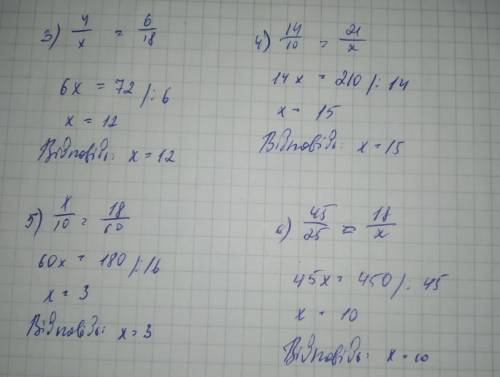 3) 4/x = 6/18
6x = 72 /:6
x = 12
Відповідь: x = 12
4) 14/10 = 21/x
14x = 210 /:14
x = 15
Відповідь: x = 15
5) x/10 = 18/60
60x = 180 /:16
x = 3
Відповідь: x = 3
6) 45/25 = 18/x
45x = 450 /: 45
x = 10
Відповідь: x = 10